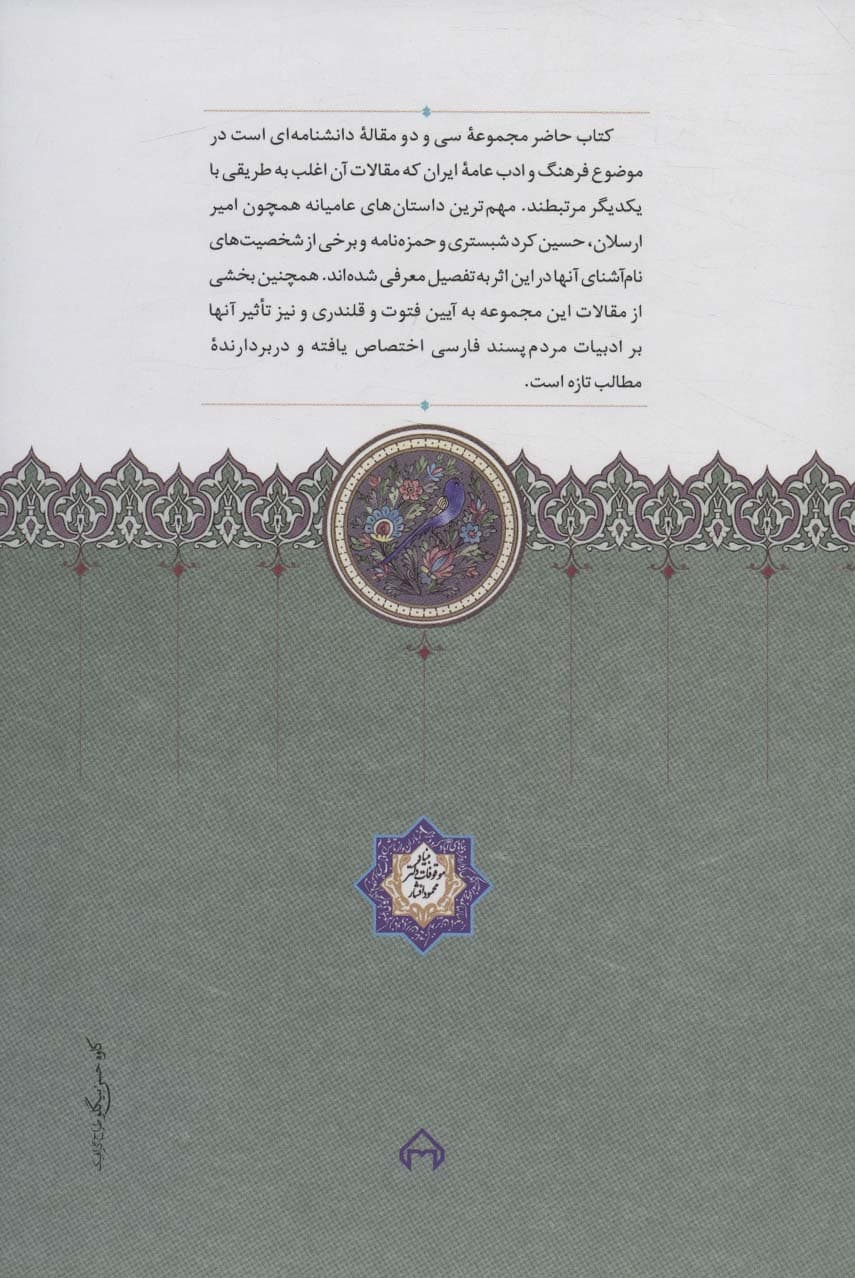 کتاب حاضر مجموعهٔ سی و دو مقالهٔ دانشنامه‌ای است در
موضوع فرهنگ و ادب عامهٔ ایران که مقالات آن اغلب به طریقی با
یکدیگر مرتبطند. مهم‌ترین داستان‌های عامیانه همچون امیر
ارسلان، حسین کرد شبستری و حمزه‌نامه و برخی از شخصیت‌های
نام‌آشنای آنها در این اثر به تفصیل معرفی شده‌اند. همچنین بخشی
از مقالات این مجموعه به آیین فتوت و قلندری و نیز تأثیر آنها
بر ادبیات مردم‌پسند فارسی اختصاص یافته و دربردارندهٔ
مطالب تازه است.
بنیاد
موقوفات دکتر
محمود افشار
کاوه حسن بیگلو طراح گرافیک